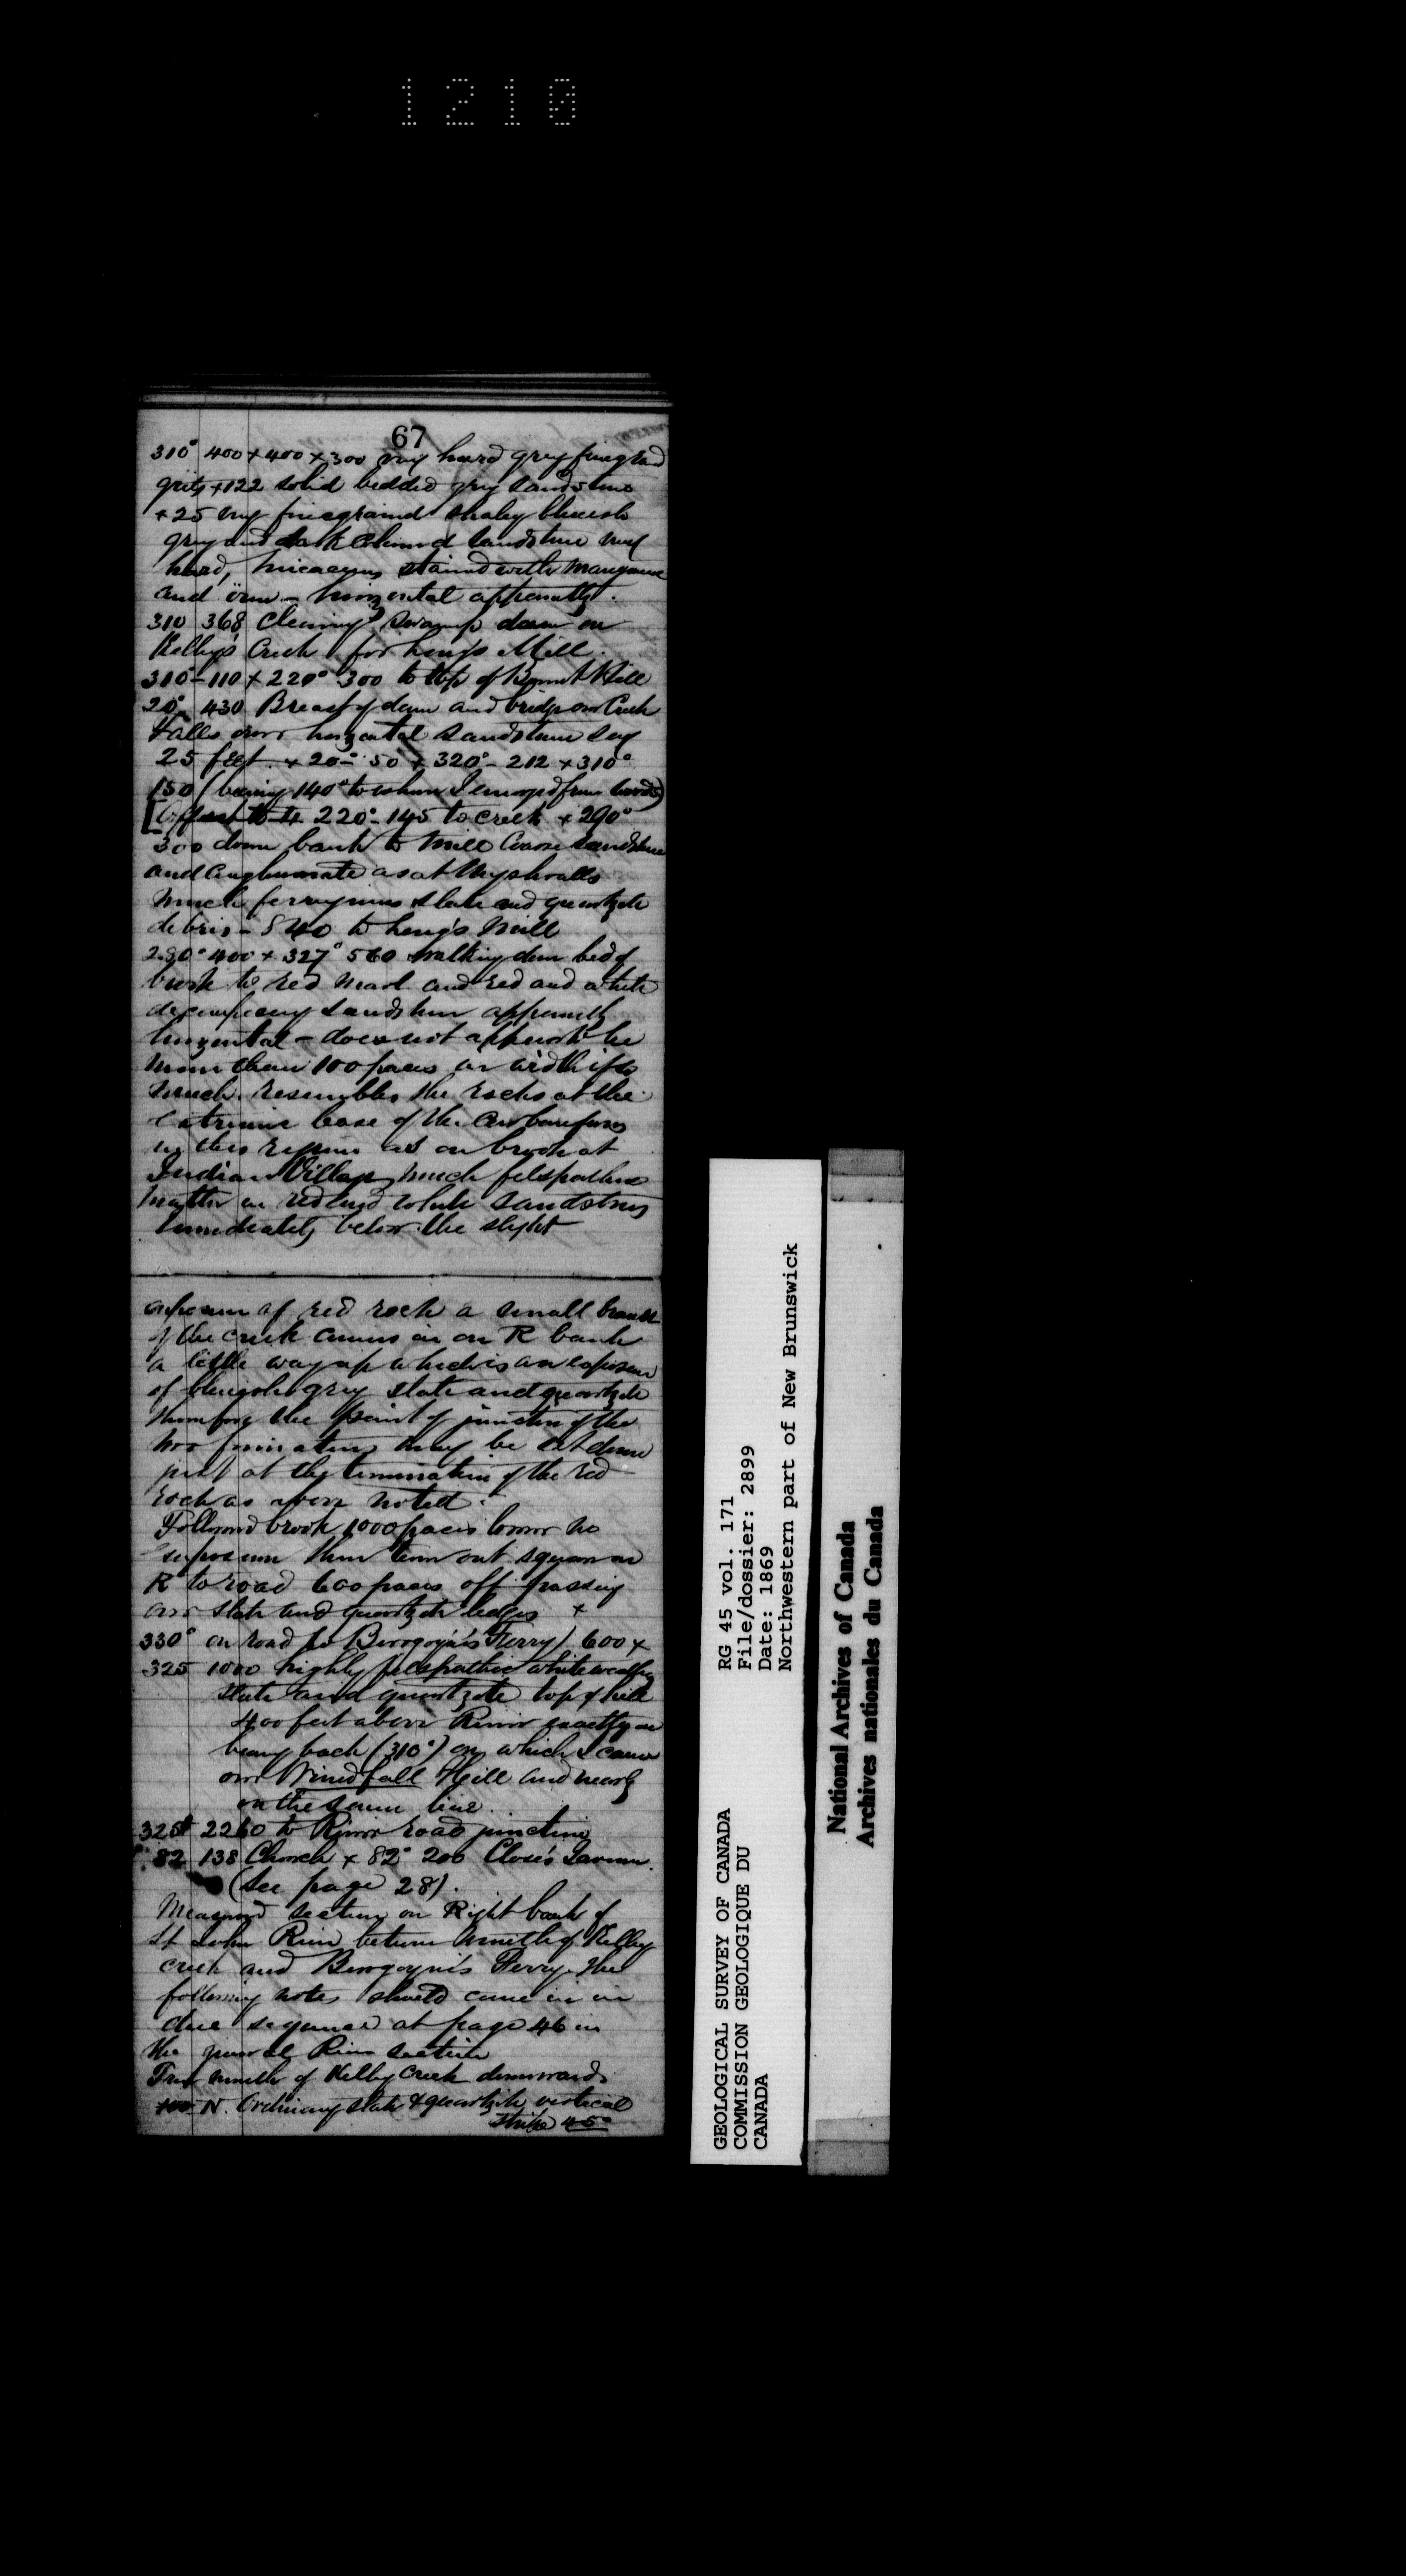 1210
67
310° 400 + 400 + 300 very hard grey finegrd
grits + 122 solid bedded grey sandstone
+ 25 very finegrained shaley blueish
grey and dark coloured sandstone very
hard, micaceous stained with manganese
and iron - horizontal apparently.
310 368 Clearing swamp dam on
Kelly's Creek for Long's Mill.
310° - 110 + 220° 300 to top of Hill
20° 430 Breast of dam and bridge over Creek
Falls over horizontal sandstone say
25 feet + 20° - 50 + 320° - 212 + 310°
150 (being 140° to where I emerged from woods)
220° - 145 to creek + 290°
300 down bank to mill Coarse sandstone
and conglomerate as at
much ferruginous slate and quartzite
debris - 840 to Long's Mill
280° 400 + 327° 560 walking down bed of
brook to red marl and red and white
decomposing sandstone apparently
horizontal - does not appear to be
more than 100 paces in width if so
much resembles the rocks at the
extreme base of the Carboniferous
in this region as on brook at
Indian Village much felspathic
matter in red and white sandstones
immediately below the slight
exposure of red rock a small branch
of the creek comes in on R bank
a little way up which is an exposure
of blueish grey slate and quartzite
therefore the point of junction of the
two formations may be set down
just at the termination of the red
rock as were noted.
Followed brook 1000 paces lower no
exposure then turn out square on
R to road 600 paces off passing
over slate and quartzite ledges +
330° on road (to Burgoyne's Ferry) 600 +
325 1000 highly felspathic white weathg
slate and quartzite top of hill
400 feet above River exactly on
being back (310°) on which I came
over Windfall Hill and nearly
on the same line.
325° 2260 to River road junction
82 138 Church + 82° 200 Close's Tavern.
(See page 28).
Measured section on Right bank of
St John River between mouth of Kelly
creek and Burgoyne's Ferry. The
following notes should come in in
due sequence at page 46 in
the general River section
From mouth of Kelly Creek downwards
N. Ordinary slate & quartzite vertical
strike 45°
GEOLOGICAL SURVEY OF CANADA
COMMISSION GEOLOGIQUE DU
CANADA
RG 45 vol. 171
File/dossier: 2899
Date: 1869
Northwestern part of New Brunswick
National Archives of Canada
Archives nationales du Canada